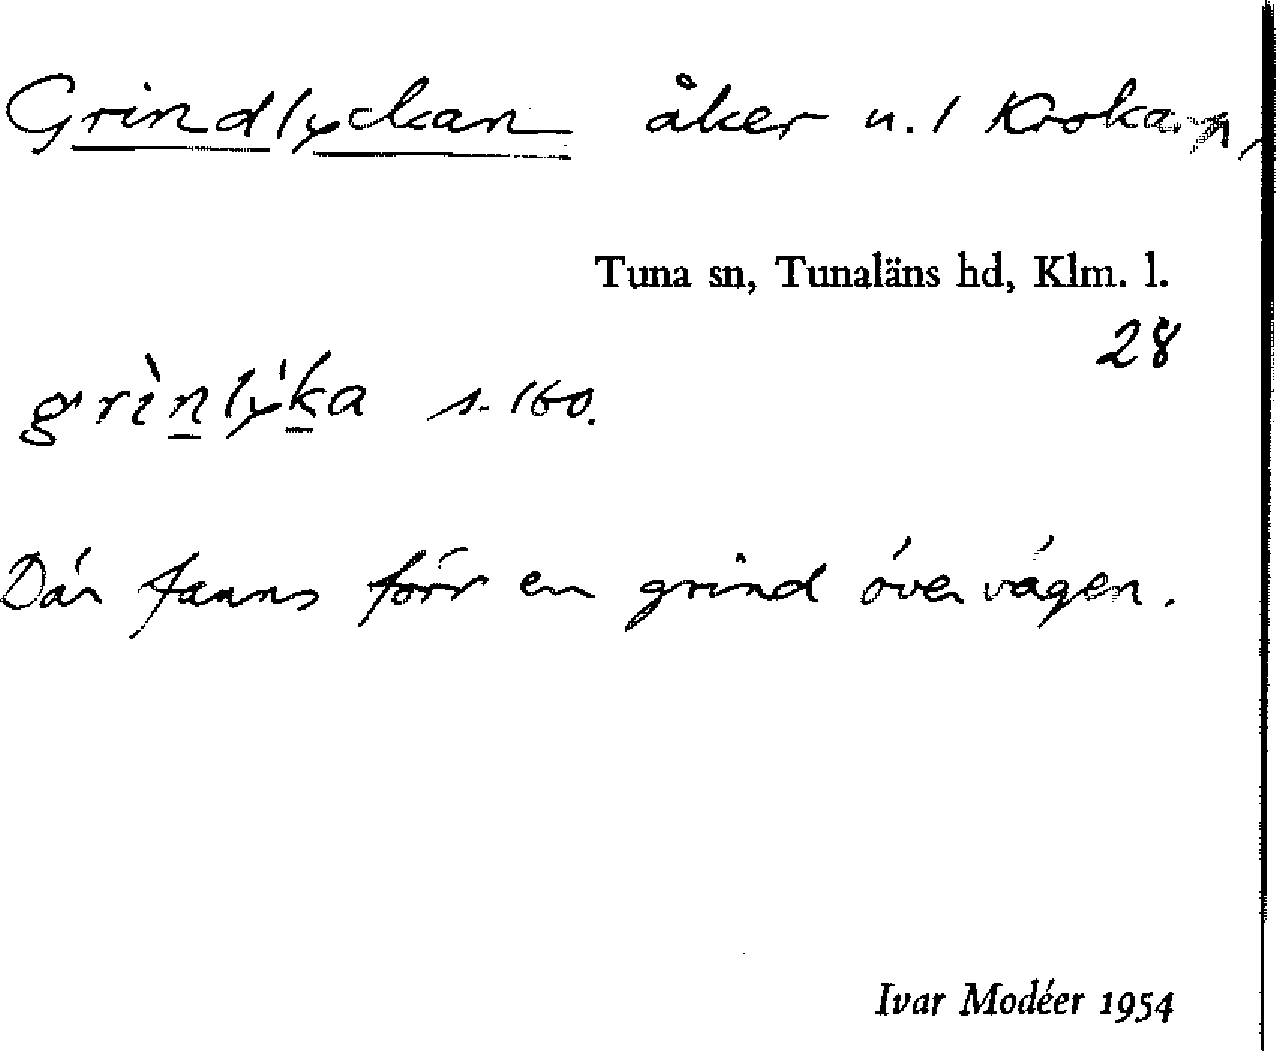 Grindlyckan åker u. 1 Krokarp,
Tuna sn, Tunaläns hd, Klm. l.
28
grìnlýka s. 160.
Där fanns förr en grind över vägen.
Ivar Modéer 1954